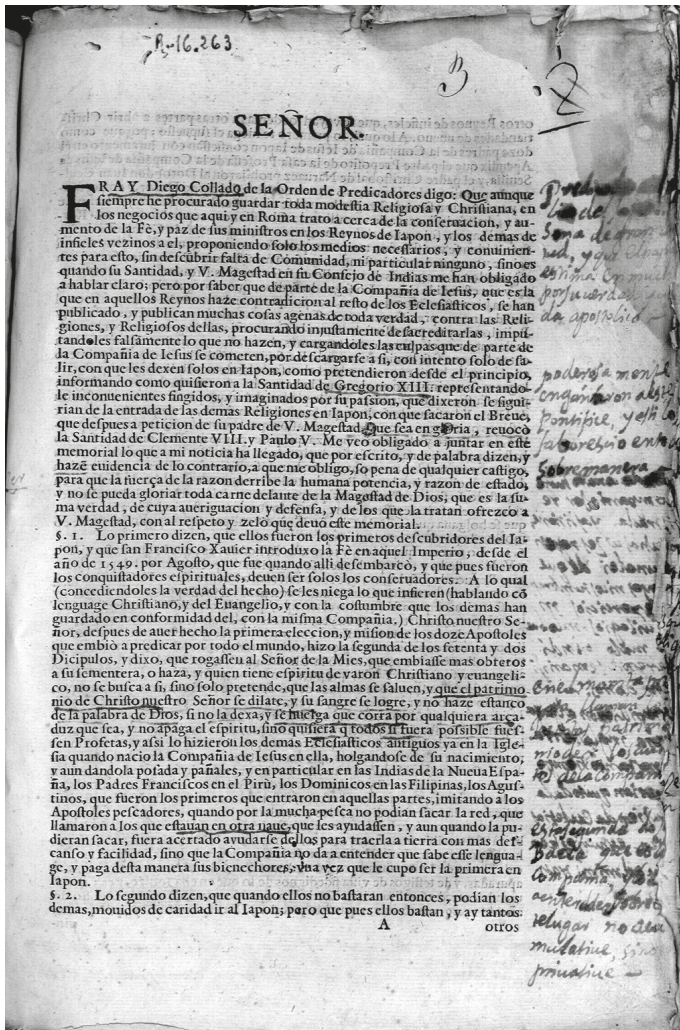 R-16.263
B
SEÑOR.
FRAY Diego Collado de la Orden de Predicadores digo: Que aunque
siempre he procurado guardar toda modestia Religiosa y Christiana, en
los negocios que aqui y en Roma trato a cerca de la conseruacion, y au-
mento de la Fè, y paz de sus ministros en los Reynos de Iapon, y los demas de
infieles vezinos a el, proponiendo solo los medios necessarios, y conuinien-
tes para esto, sin descubrir falta de Comunidad, ni particular ninguno, sino es
quando su Santidad, y V. Magestad en su Consejo de Indias me han obligado
a hablar claro; pero por saber que de parte de la Compañia de Iesus, que es la
que en aquellos Reynos haze contradicion al resto de los Eclesiasticos, se han
publicado, y publican muchas cosas agenas de toda verdad, contra las Reli-
giones, y Religiosos dellas, procurando injustamente desacreditarlas, impu-
tandoles falsamente lo que no hazen, y cargandoles las culpas que de parte de
la Compañia de Iesus se cometen, por descargarse a si, con intento solo de sa-
lir, con que les dexen solos en Iapon, como pretendieron desde el principio,
informando como quisieron a la Santidad de Gregorio XIII. representando-
le inconuenientes fingidos, y imaginados por su passion, que dixeron se segui-
rian de la entrada de las demas Religiones en Iapon, con que sacaron el Breue,
que despues a peticion de su padre de V. Magestad, que sea en gloria, reuocò
la Santidad de Clemente VIII. y Paulo V. Me veo obligado a juntar en este
memorial lo que a mi noticia ha llegado, que por escrito, y de palabra dizen, y
hazẽ euidencia de lo contrario, a que me obligo, so pena de qualquier castigo,
para que la fuerça de la razon derribe la humana potencia, y razon de estado,
y no se pueda gloriar toda carne delante de la Magestad de Dios, que es la su-
ma verdad, de cuya aueriguacion y defensa, y de los que la tratan ofrezco a
V. Magestad, con al respeto y zelo que deuo este memorial.
§. 1. Lo primero dizen, que ellos fueron los primeros descubridores del Ia-
pon, y que san Francisco Xauier introduxo la Fè en aquel Imperio, desde el
año de 1549. por Agosto, que fue quando alli desembarcò, y que pues fueron
los conquistadores espirituales, deuen ser solos los conseruadores. A lo qual
(concediendoles la verdad del hecho) se les niega lo que infieren (hablando cõ
lenguage Christiano, y del Euangelio, y con la costumbre que los demas han
guardado en conformidad del, con la misma Compañia.) Christo nuestro Se-
ñor, despues de auer hecho la primera eleccion, y mision de los doze Apostoles
que embiò a predicar por todo el mundo, hizo la segunda de los setenta y dos
Dicipulos, y dixo, que rogassen al Señor de la Mies, que embiasse mas obreros
a su sementera, o haza, y quien tiene espiritu de varon Christiano y euangeli-
co, no se busca a si, sino solo pretende, que las almas se saluen, y que el patrimo-
nio de Christo nuestro Señor se dilate, y su sangre se logre, y no haze estanco
de la palabra de Dios, si no la dexa, y se huelga que corra por qualquiera arca-
duz que sea, y no apaga el espiritu, sino quisiera q̃ todos si fuera possible fues-
sen Profetas, y assi lo hizieron los demas Eclesiasticos antiguos ya en la Igle-
sia quando nacio la Compañia de Iesus en ella, holgandose de su nacimiento,
y aun dandola posada y pañales, y en particular en las Indias de la Nueua Espa-
ña, los Padres Franciscos en el Pirù, los Dominicos en las Filipinas, los Agus-
tinos, que fueron los primeros que entraron en aquellas partes, imitando a los
Apostoles pescadores, quando por la mucha pesca no podian sacar la red, que
llamaron a los que estauan en otra naue, que les ayudassen, y aun quando la pu-
dieran sacar, fuera acertado ayudarse dellos para traerla a tierra con mas des-
canso y facilidad, sino que la Compañia no da a entender que sabe esse lengua-
ge, y paga desta manera sus bienechores, vna vez que le cupo ser la primera en
Iapon.
§. 2. Lo segundo dizen, que quando ellos no bastaran entonces, podian los
demas, mouidos de caridad ir al Iapon; pero que pues ellos bastan, y ay tantos
A
otros
poderosamente
engañaron al
Pontifice, y
Sobremanera
segunda
compañia
relugar no
mulatiue, sino
priuatiue